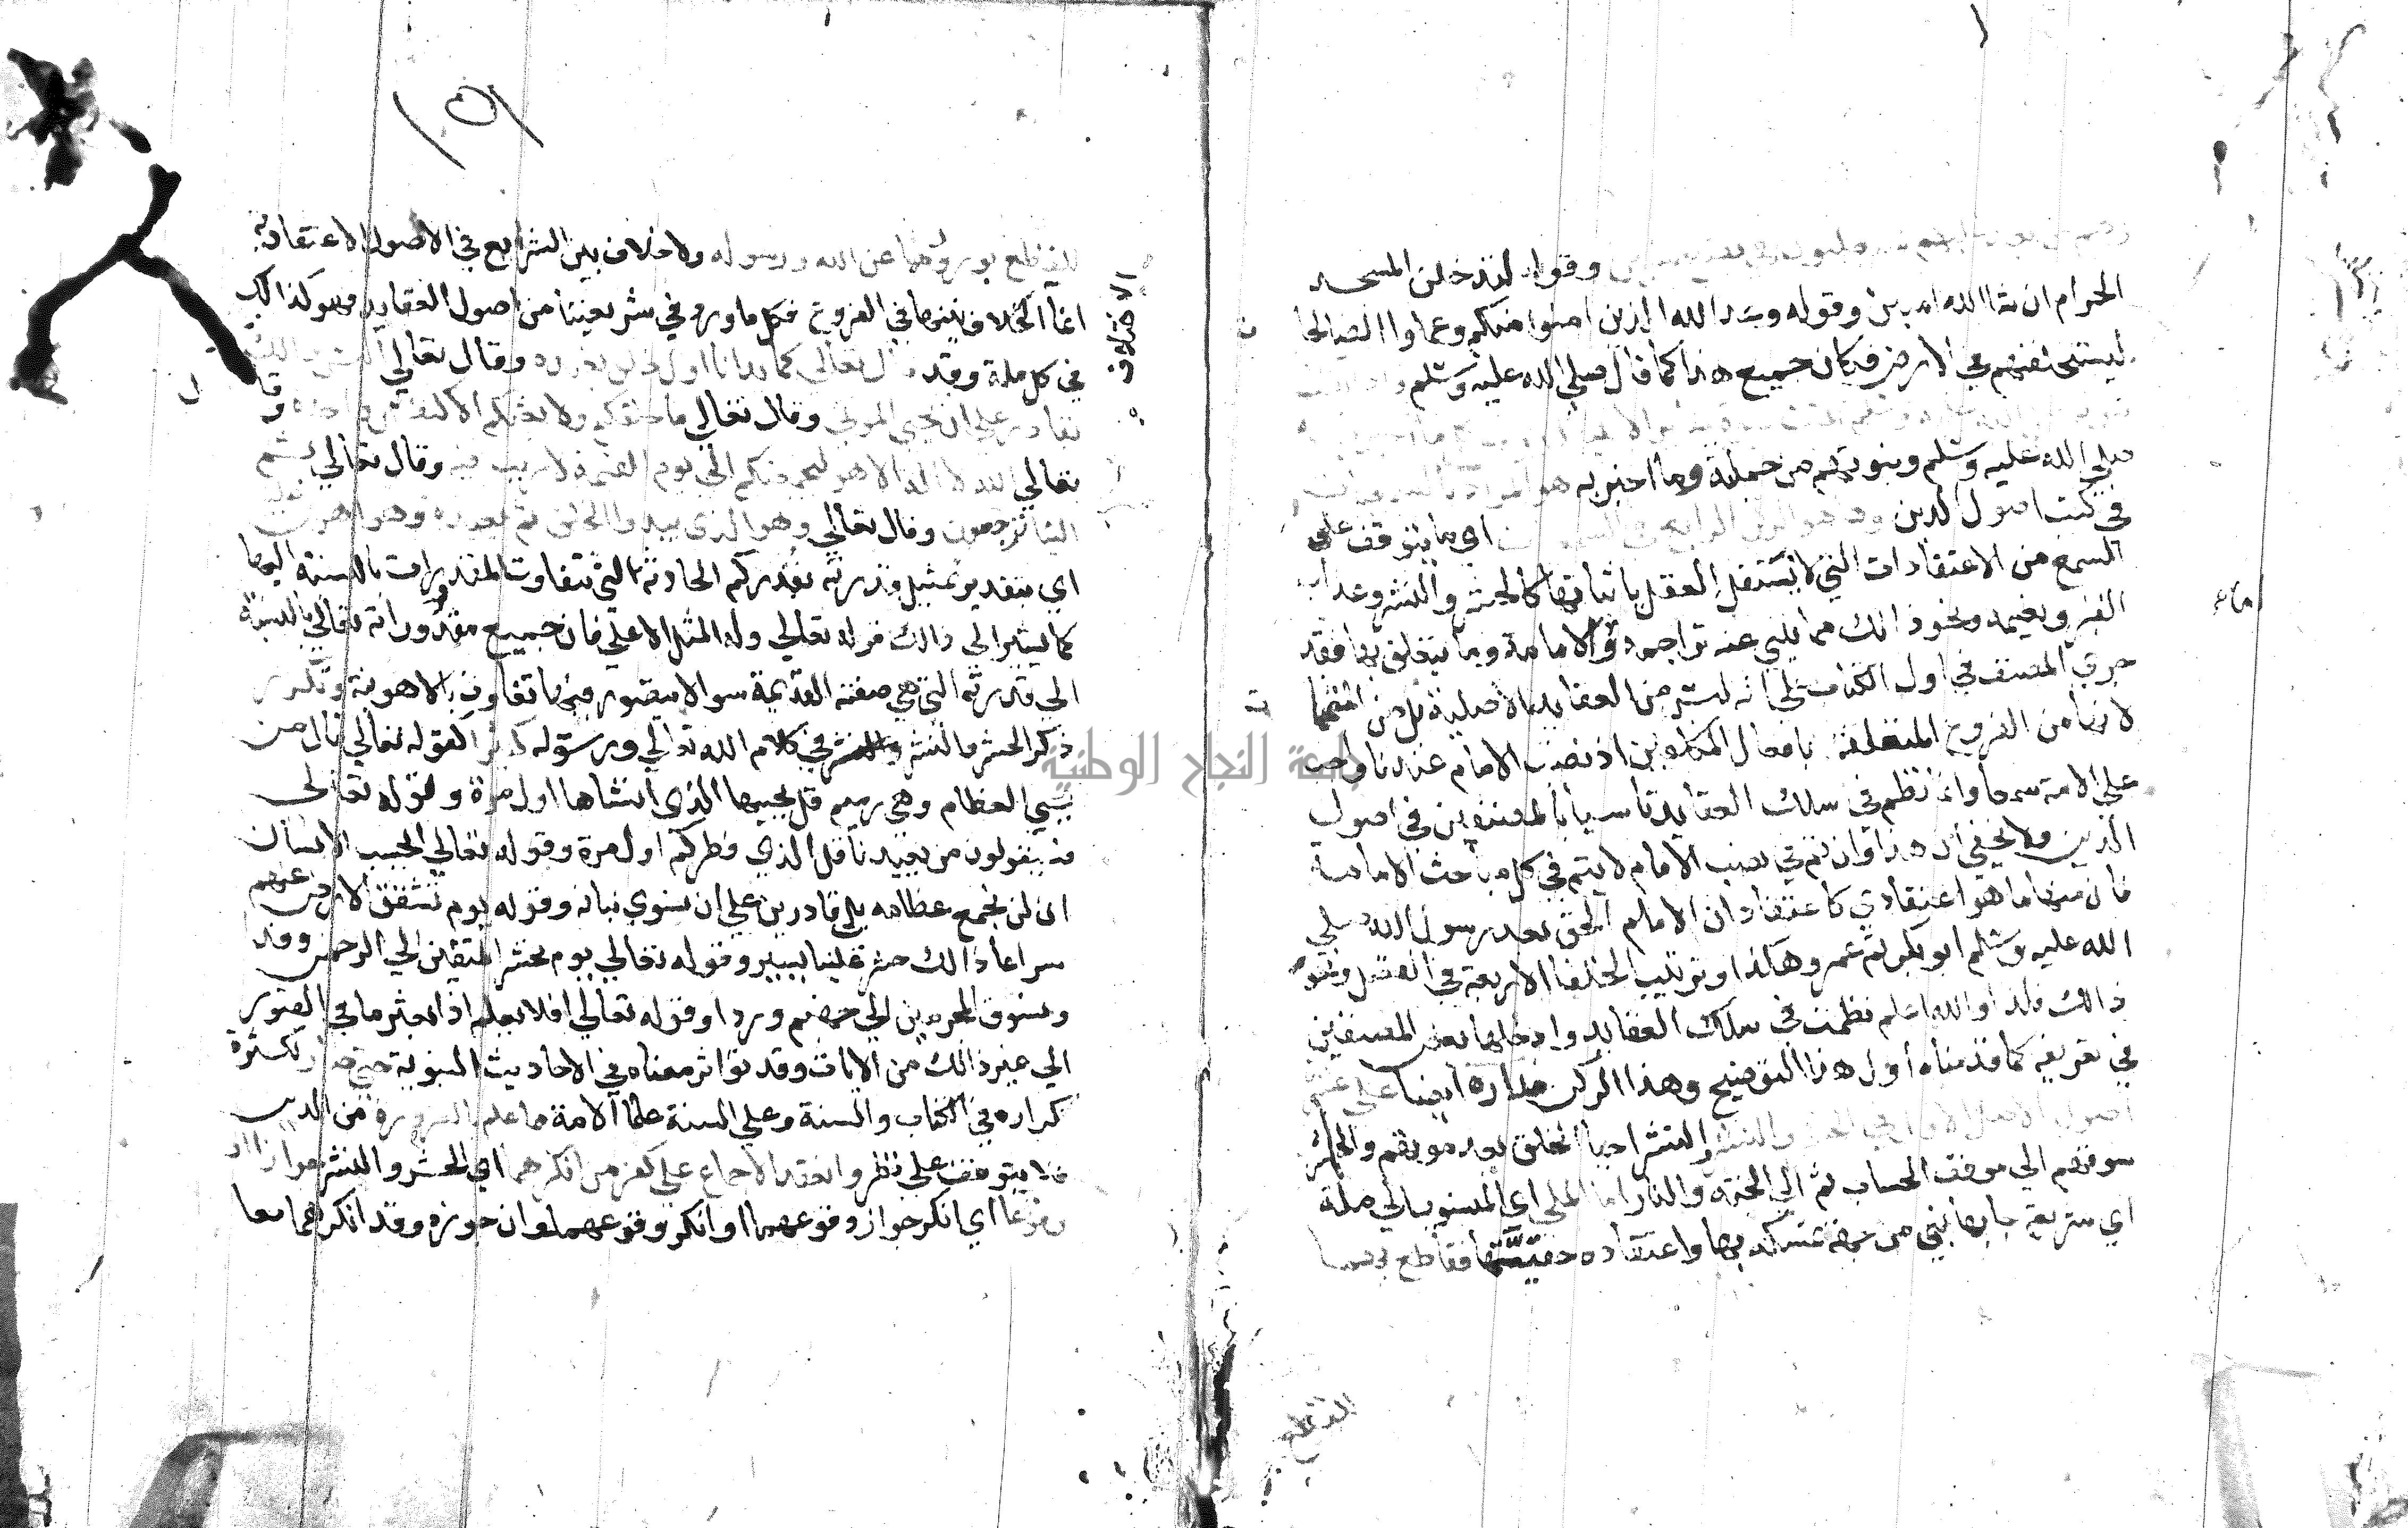 وقوله لتدخلن المسجد
الحرام ان شا الله امنين وقوله وعد الله الذين امنوا منكم وعملوا الصالحا
ليستخلفنهم في الارض فكان جميع هذا كما قال صلى الله عليه وسلم
صلى الله عليه وسلم ونبوتهم من جملة ما اخبر به هو
في كتب اصول الدين اي ما يتوقف على
السمع من الاعتقادات التي لا يستقل العقل باثباتها كالحشر والنشر وعذاب
القبر ونعيمه ونحو ذالك مما يلي عنه تراجمه والامامة وما يتعلق بها فقد
جري المصنف في اول الكتاب على انه ليس من العقايد الاصلية بل من المتمما
لانها من الفروع المتعلقة بافعال المكلفين اذ نصب الامام عندنا واجب
على الامة سمعا وانما نظم في سلك العقايد تاسيا بالمصنفين في اصول
الدين ولا يخفي ان هذا وان تم في نصب الامام لا يتم في كل مباحث الامامة
فان منها ما هو اعتقادي كاعتقاد ان الامام الحق بعد رسول الله صلي
الله عليه وسلم ابو بكر ثم عمر وهكذا وترتيب الخلفا الاربعة في الفضل ونحو
ذالك فلذا والله اعلم نظمت في سلك العقايد وادخلها بعض المصنفين
في تعريفه كما قدمناه اول هذا التوضيح وهذا الركن مداره ايضا علي عشرة
اصول الاصل الاول في الحشر والنشر والنشر احيا الخلق بعد موتهم والحشر
سوقهم الي موقف الحساب ثم الي الجنة والنار اما الملي اي المنسوب الي ملة
اي شريعة جا بها نبي من جهة تمسكه بها واعتقاده حقيتها فقاطع بهما
القاطع
١٥١
للقاطع بورودهما عن الله ورسوله ولا خلاف بين الشرايع في الاصول الاعتقادية
انما الخلاف بينها في الفروع فكل ما ورد في شريعتنا من اصول العقايد فهو كذالك
في كل ملة وقد قال تعالي كما بدانا اول خلق نعيده وقال تعالي اليس ذالك
بقادر على ان يحيي الموتي وقال تعالي ما خلقكم ولا بعثكم الا كنفس واحدة وقا
تعالي الله لا اله الا هو ليجمعنكم الي يوم القيمة لا ريب فيه وقال تعالي ثم
الينا ترجعون وقال تعالي وهو الذي يبدوا الخلق ثم يعيده وهو اهون
اي بتقدير تمثيل قدرته بقدركم الحادثة التي تتفاوت المقدورات بالنسبة اليها
كما يشير الي ذالك قوله تعالي وله المثل الاعلي فان جميع مقدوراته تعالي بالنسبة
الي قدرته التي هي صفته القديمة سوا لا يتصور فيها تفاوت بالاهونية وتكرر
ذكر الحشر والنشر في كلام الله تعالي ورسوله كثيرا كقوله تعالي قال من
يحيي العظام وهي رميم قل يحييها الذي انشاها اول مرة وقوله تعالي
فسيقولون من يعيدنا قل الذي فطركم اول مرة وقوله تعالي ايحسب الانسان
ان لن نجمع عظامه بلي قادرين علي ان نسوي بنانه وقوله يوم تشقق الارض عنهم
سراعا ذالك حشر علينا يسير وقوله تعالي يوم نحشر المتقين الي الرحمن وفدا
ونسوق المجرمين الي جهنم وردا وقوله تعالي افلا يعلم اذا بعثر ما في القبور
الي غير ذالك من الايات وقد تواتر معناه في الاحاديث النبوية حتي صار لكثرة
تكراره في الكتاب والسنة وعلي السنة علما الامة ما علم بالضرورة من الدين
فلا يتوقف علي نظر وانعقد الاجماع علي كفر من انكرهما اي الحشر والنشر جوازا او
وقوعا اي انكر جواز وقوعهما او انكر وقوعهما وان جوزه وقد انكرهما معا
جامعة النجاح الوطنية